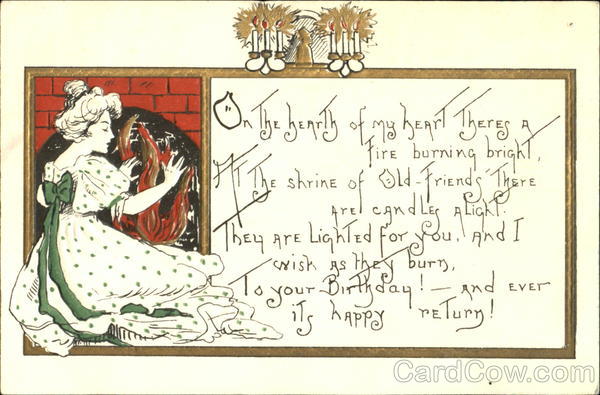 On the hearth of my heart theres a
fire burning bright,
At the shrine of "Old-Friends" there
are candles alight.
They are lighted for you, and I
wish as they burn,
To your Birthday! — and ever
its happy return!
CardCow.com